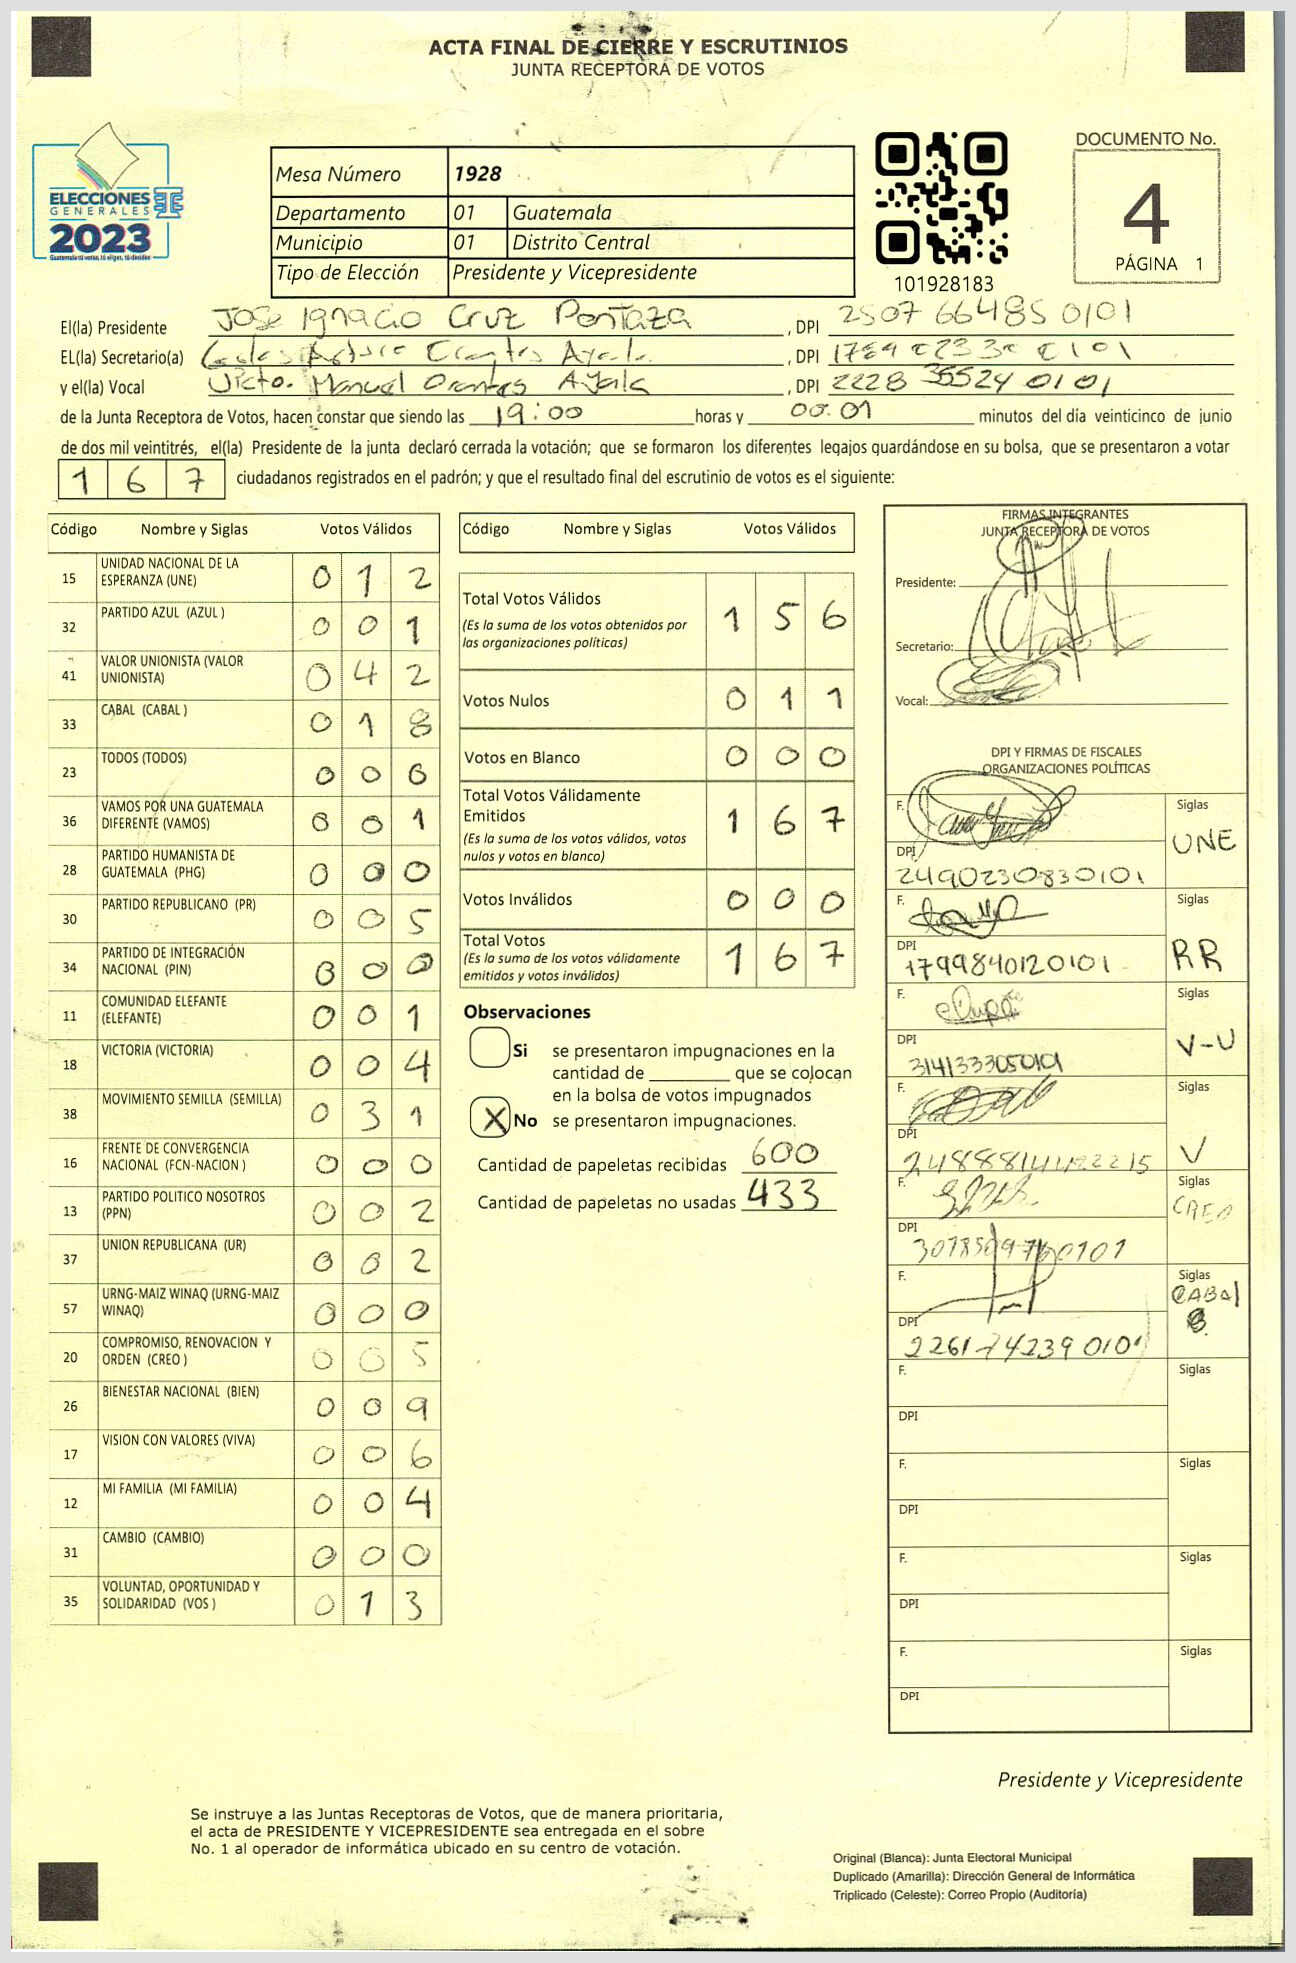 ACTA FINAL DE CIERRE Y ESCRUTINIOS
JUNTA RECEPTORA DE VOTOS
ELECCIONES
GENERALES
2023
Guatemala tú votas, tú eliges, tú decides
Mesa Número 1928
Departamento 01 Guatemala
Municipio 01 Distrito Central
Tipo de Elección Presidente y Vicepresidente
101928183
DOCUMENTO No.
4
PÁGINA 1
El(la) Presidente Jose Ignacio Cruz Pontaza, DPI 2507 66485 0101
EL(la) Secretario(a) Arturo Ayala, DPI
y el(la) Vocal Victor Manuel Orantes Ayala, DPI 2228 36524 0101
de la Junta Receptora de Votos, hacen constar que siendo las 19:00 horas y 00:01 minutos del día veinticinco de junio
de dos mil veintitrés, el(la) Presidente de la junta declaró cerrada la votación; que se formaron los diferentes legajos guardándose en su bolsa, que se presentaron a votar
167 ciudadanos registrados en el padrón; y que el resultado final del escrutinio de votos es el siguiente:
Código Nombre y Siglas Votos Válidos
15 UNIDAD NACIONAL DE LA ESPERANZA (UNE) 012
32 PARTIDO AZUL (AZUL ) 001
41 VALOR UNIONISTA (VALOR UNIONISTA) 042
33 CABAL (CABAL ) 018
23 TODOS (TODOS) 006
36 VAMOS POR UNA GUATEMALA DIFERENTE (VAMOS) 001
28 PARTIDO HUMANISTA DE GUATEMALA (PHG) 000
30 PARTIDO REPUBLICANO (PR) 005
34 PARTIDO DE INTEGRACIÓN NACIONAL (PIN) 000
11 COMUNIDAD ELEFANTE (ELEFANTE) 001
18 VICTORIA (VICTORIA) 004
38 MOVIMIENTO SEMILLA (SEMILLA) 031
16 FRENTE DE CONVERGENCIA NACIONAL (FCN-NACION ) 000
13 PARTIDO POLITICO NOSOTROS (PPN) 002
37 UNION REPUBLICANA (UR) 002
57 URNG-MAIZ WINAQ (URNG-MAIZ WINAQ) 000
20 COMPROMISO, RENOVACION Y ORDEN (CREO ) 005
26 BIENESTAR NACIONAL (BIEN) 009
17 VISION CON VALORES (VIVA) 006
12 MI FAMILIA (MI FAMILIA) 004
31 CAMBIO (CAMBIO) 000
35 VOLUNTAD, OPORTUNIDAD Y SOLIDARIDAD (VOS ) 013
Código Nombre y Siglas Votos Válidos
Total Votos Válidos 156
(Es la suma de los votos obtenidos por
las organizaciones políticas)
Votos Nulos 011
Votos en Blanco 000
Total Votos Válidamente
Emitidos 167
(Es la suma de los votos válidos, votos
nulos y votos en blanco)
Votos Inválidos 000
Total Votos 167
(Es la suma de los votos válidamente
emitidos y votos inválidos)
Observaciones
Si se presentaron impugnaciones en la
cantidad de ________ que se colocan
en la bolsa de votos impugnados
X No se presentaron impugnaciones.
Cantidad de papeletas recibidas 600
Cantidad de papeletas no usadas 433
FIRMAS INTEGRANTES
JUNTA RECEPTORA DE VOTOS
Presidente:
Secretario:
Vocal:
DPI Y FIRMAS DE FISCALES
ORGANIZACIONES POLÍTICAS
F. Siglas UNE
DPI 2490230830101
F. Siglas RR
DPI 1799840120101
F. Siglas V-U
DPI 3141333050101
F. Siglas V
DPI
F. Siglas CREO
DPI
F. Siglas CABAl
DPI 2261742390101
F. Siglas
DPI
F. Siglas
DPI
F. Siglas
DPI
F. Siglas
DPI
Presidente y Vicepresidente
Se instruye a las Juntas Receptoras de Votos, que de manera prioritaria,
el acta de PRESIDENTE Y VICEPRESIDENTE sea entregada en el sobre
No. 1 al operador de informática ubicado en su centro de votación.
Original (Blanca): Junta Electoral Municipal
Duplicado (Amarilla): Dirección General de Informática
Triplicado (Celeste): Correo Propio (Auditoría)